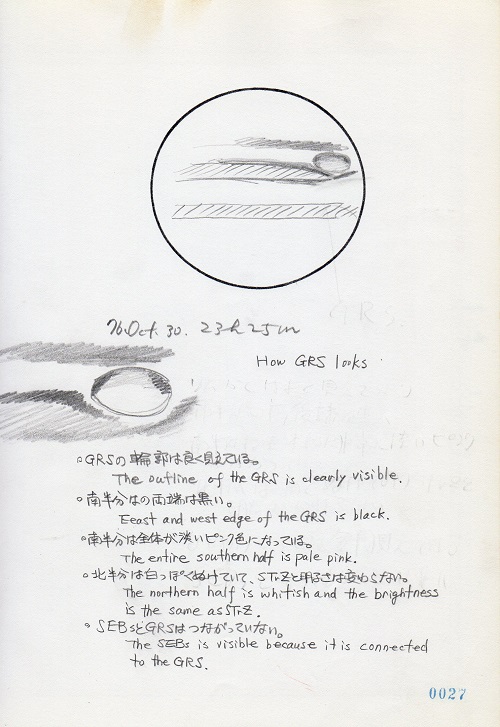 76. Oct. 30. 23h 25m
How GRS looks
○GRSの輪郭は良く見えている。
The outline of the GRS is clearly visible.
○南半分はの両端は黒い。
Eeast and west edge of the GRS is black.
○南半分は全体が淡いピンク色になっている。
The entire southern half is pale pink.
○北半分は白っぽくぬけていて、STrZと明るさは変わらない。
The northern half is whitish and the brightness
is the same as STrZ.
○SEBsとGRSはつながっていない。
The SEBs is visible because it is connected
to the GRS.
0027